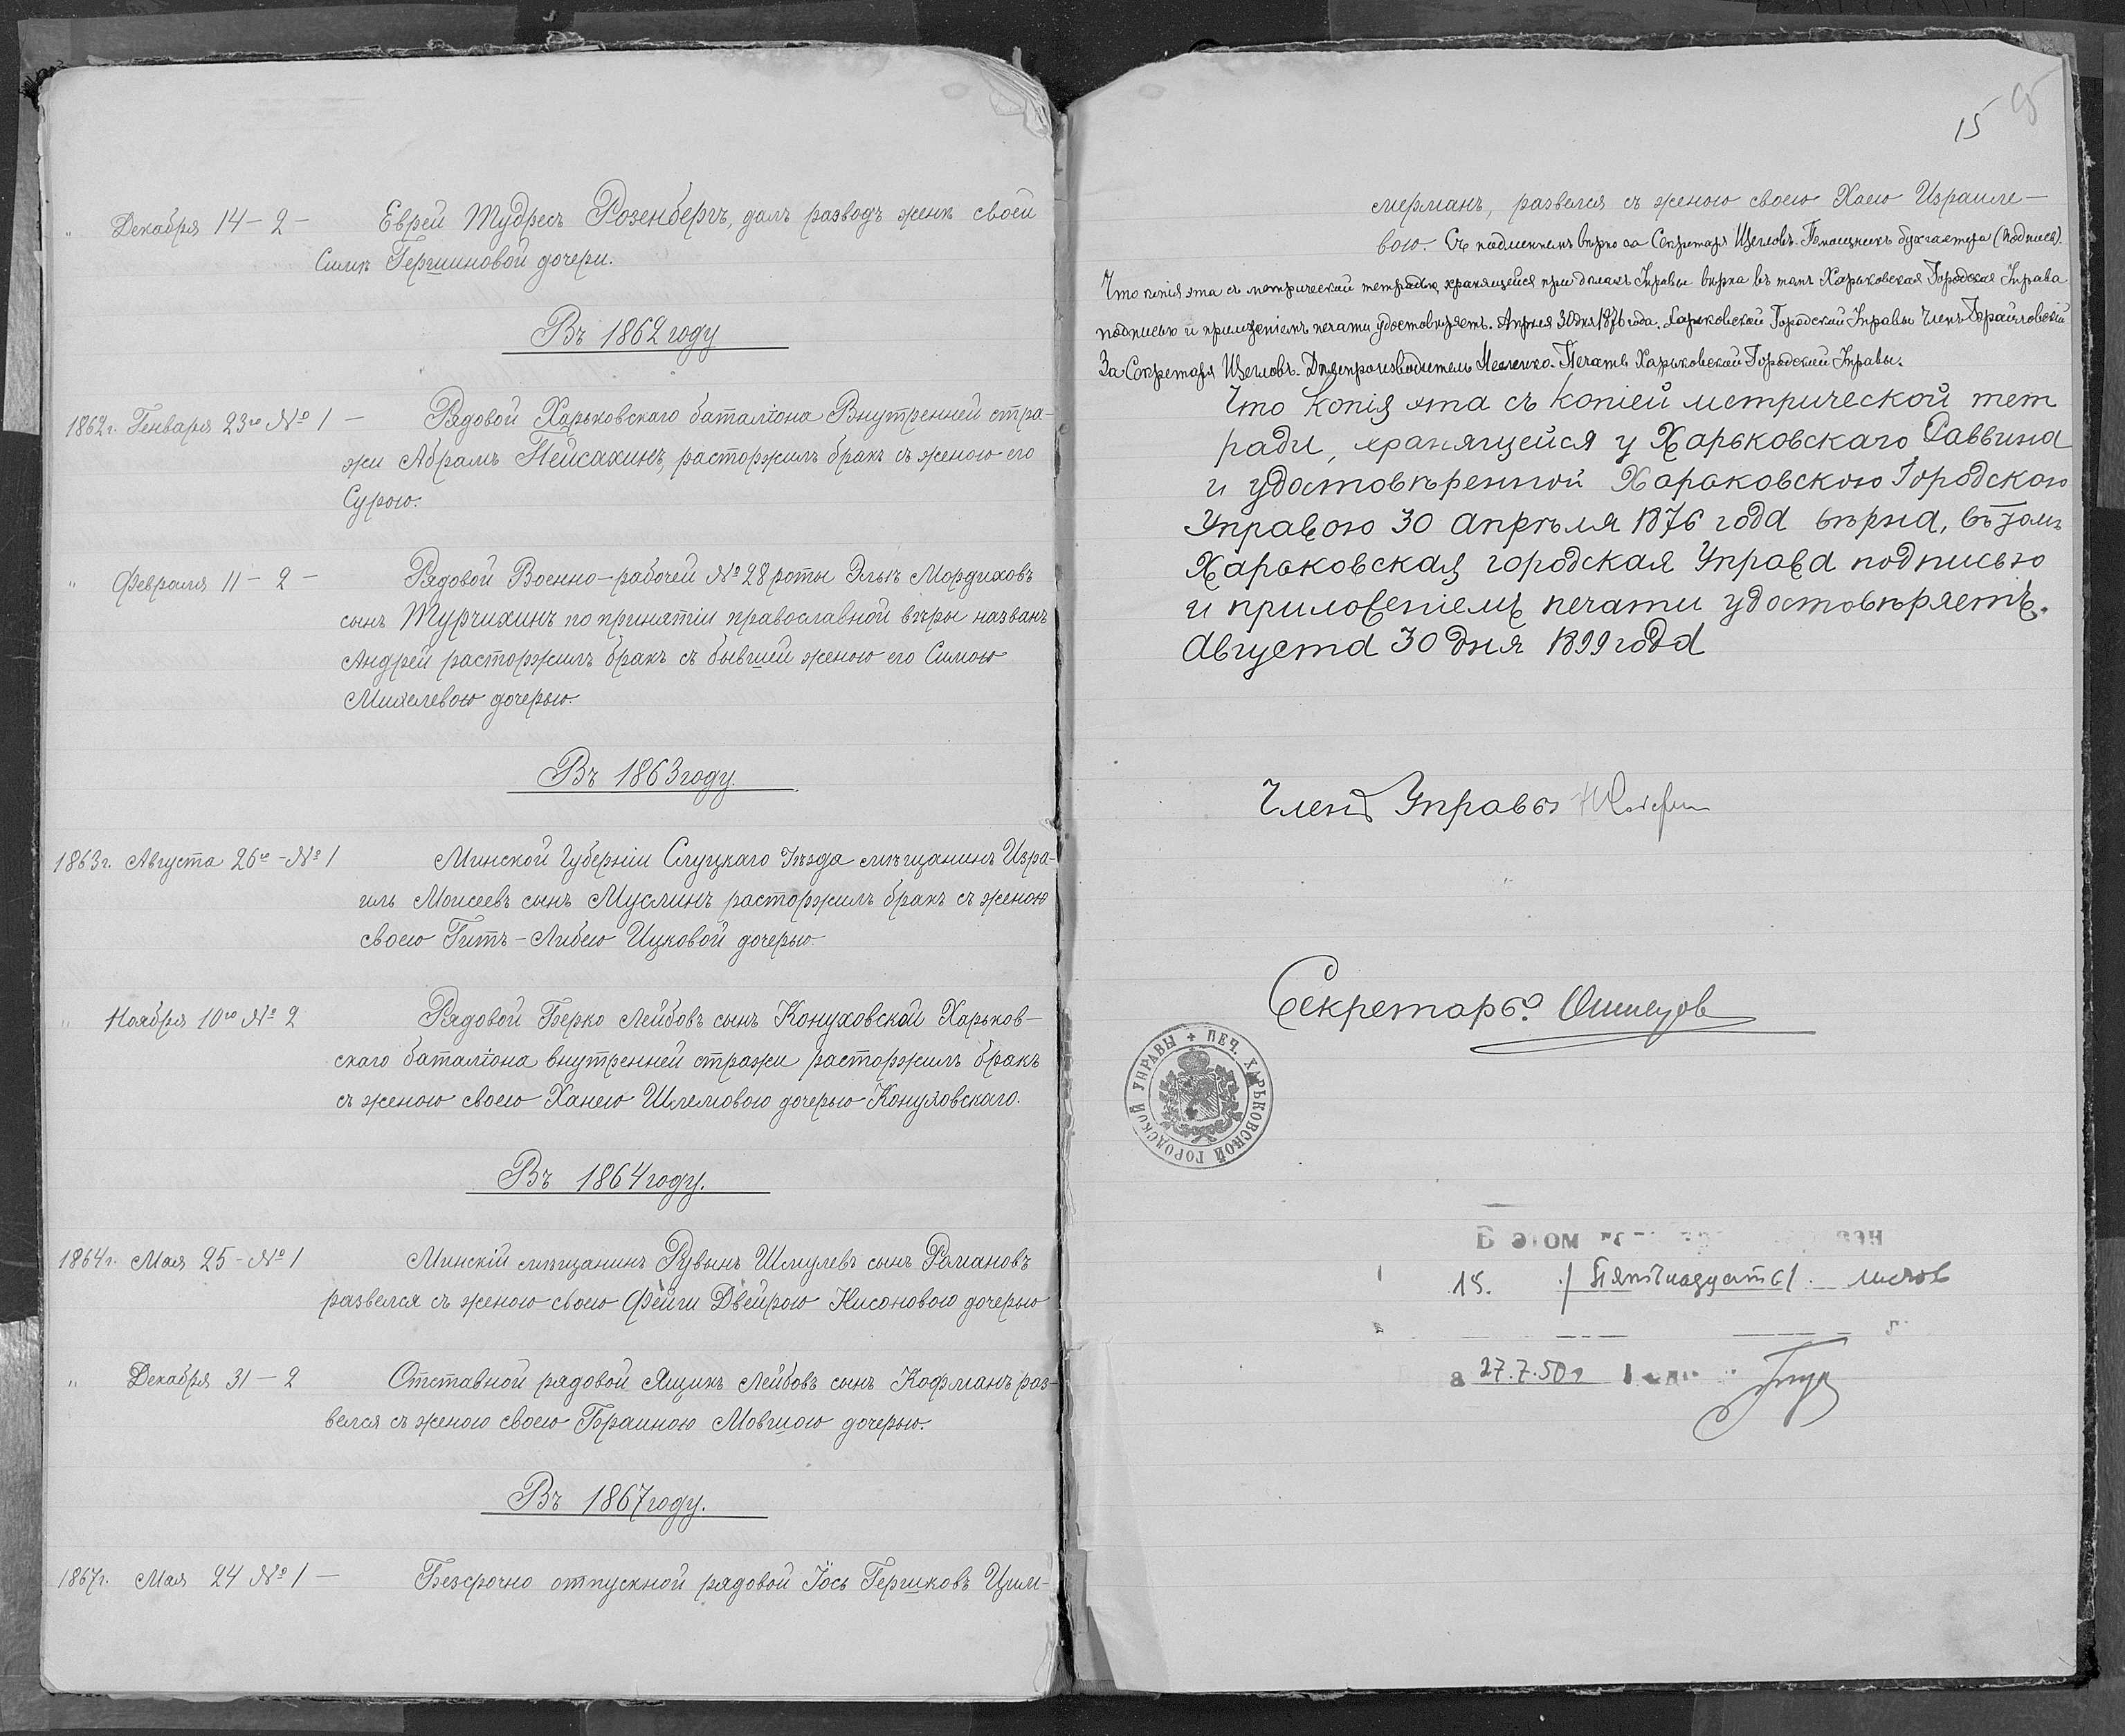 " Декабря 14 – 2 – Еврей Тудресъ Розенбергъ, далъ разводъ женѣ своей
Симѣ Гершиновой дочери.
Въ 1862 году
1862г. Генваря 23го № 1 – Рядовой Харьковскаго баталіона Внутренней стра-
жи Абрамъ Нейсахинъ, расторжилъ бракъ съ женою его
Сурою.
" Февраля 11 – 2 – Рядовой Военно-рабочей № 28 роты Элья Мордуховъ
сынъ Турчихинъ по принятіи православной вѣры названъ
Андрей расторжилъ бракъ съ бывшей женою его Симою
Михелевою дочерью.
Въ 1863 году.
1863г. Августа 26го – № 1 Минской Губерніи Слуцкаго Уѣзда мѣщанинъ Изра-
иль Моисеевъ сынъ Муслинъ расторжилъ бракъ съ женою
своею Гитъ-Либею Ицковой дочерью.
" Ноября 10го № 2 Рядовой Берко Лейбовъ сынъ Конуховской Харьков-
скаго баталіона внутренней стражи расторжилъ бракъ
съ женою своею Ханею Шлемовою дочерью Конуховскаго.
Въ 1864 году.
1864г. Мая 25 – № 1 Минскій мѣщанинъ Рувынъ Шмулевъ сынъ Романовъ
развелся съ женою своею Фейги Двейрою Нисоновою дочерью
" Декабря 31 – 2 Отставной рядовой Ящикъ Лейбовъ сынъ Кофманъ раз-
велся съ женою своею Браиною Мовшою дочерью.
Въ 1867 году.
1867г. Мая 24 № 1 – Безсрочно отпускной рядовой Іось Гершковъ Цим-
15
мерманъ, развелся съ женою своею Хаею Израиле-
вою. Съ подлиннымъ вѣрно за Секретаря Щегловъ. Помощникъ бухгалтера (подпись).
Что копія эта съ метрической тетрадью, хранящейся при дѣлахъ Управы вѣрна въ томъ Харьковская Городская Управа
подписью и приложеніемъ печати удостовѣряетъ. Апрѣля 30 дня 1876 года. Харьковской Городской Управы Членъ
За Секретаря Щегловъ. Дѣлопроизводитель Печать Харьковской Городской Управы.
Что копія эта съ копіей метрической тет
ради, хранящейся у Харьковскаго Раввина
и удостовѣренной Харьковскою Городскою
Управою 30 апрѣля 1876 года вѣрна, въ томъ
Харьковская городская Управа подписью
и приложеніемъ печати удостовѣряетъ.
Августа 30 дня 1899 года
Членъ Управы
Секретарь:
ПЕЧ. ХАРЬКОВСКОЙ ГОРОДСКОЙ УПРАВЫ
В этом
15. / Пятнадцать / листов
27.7.50г